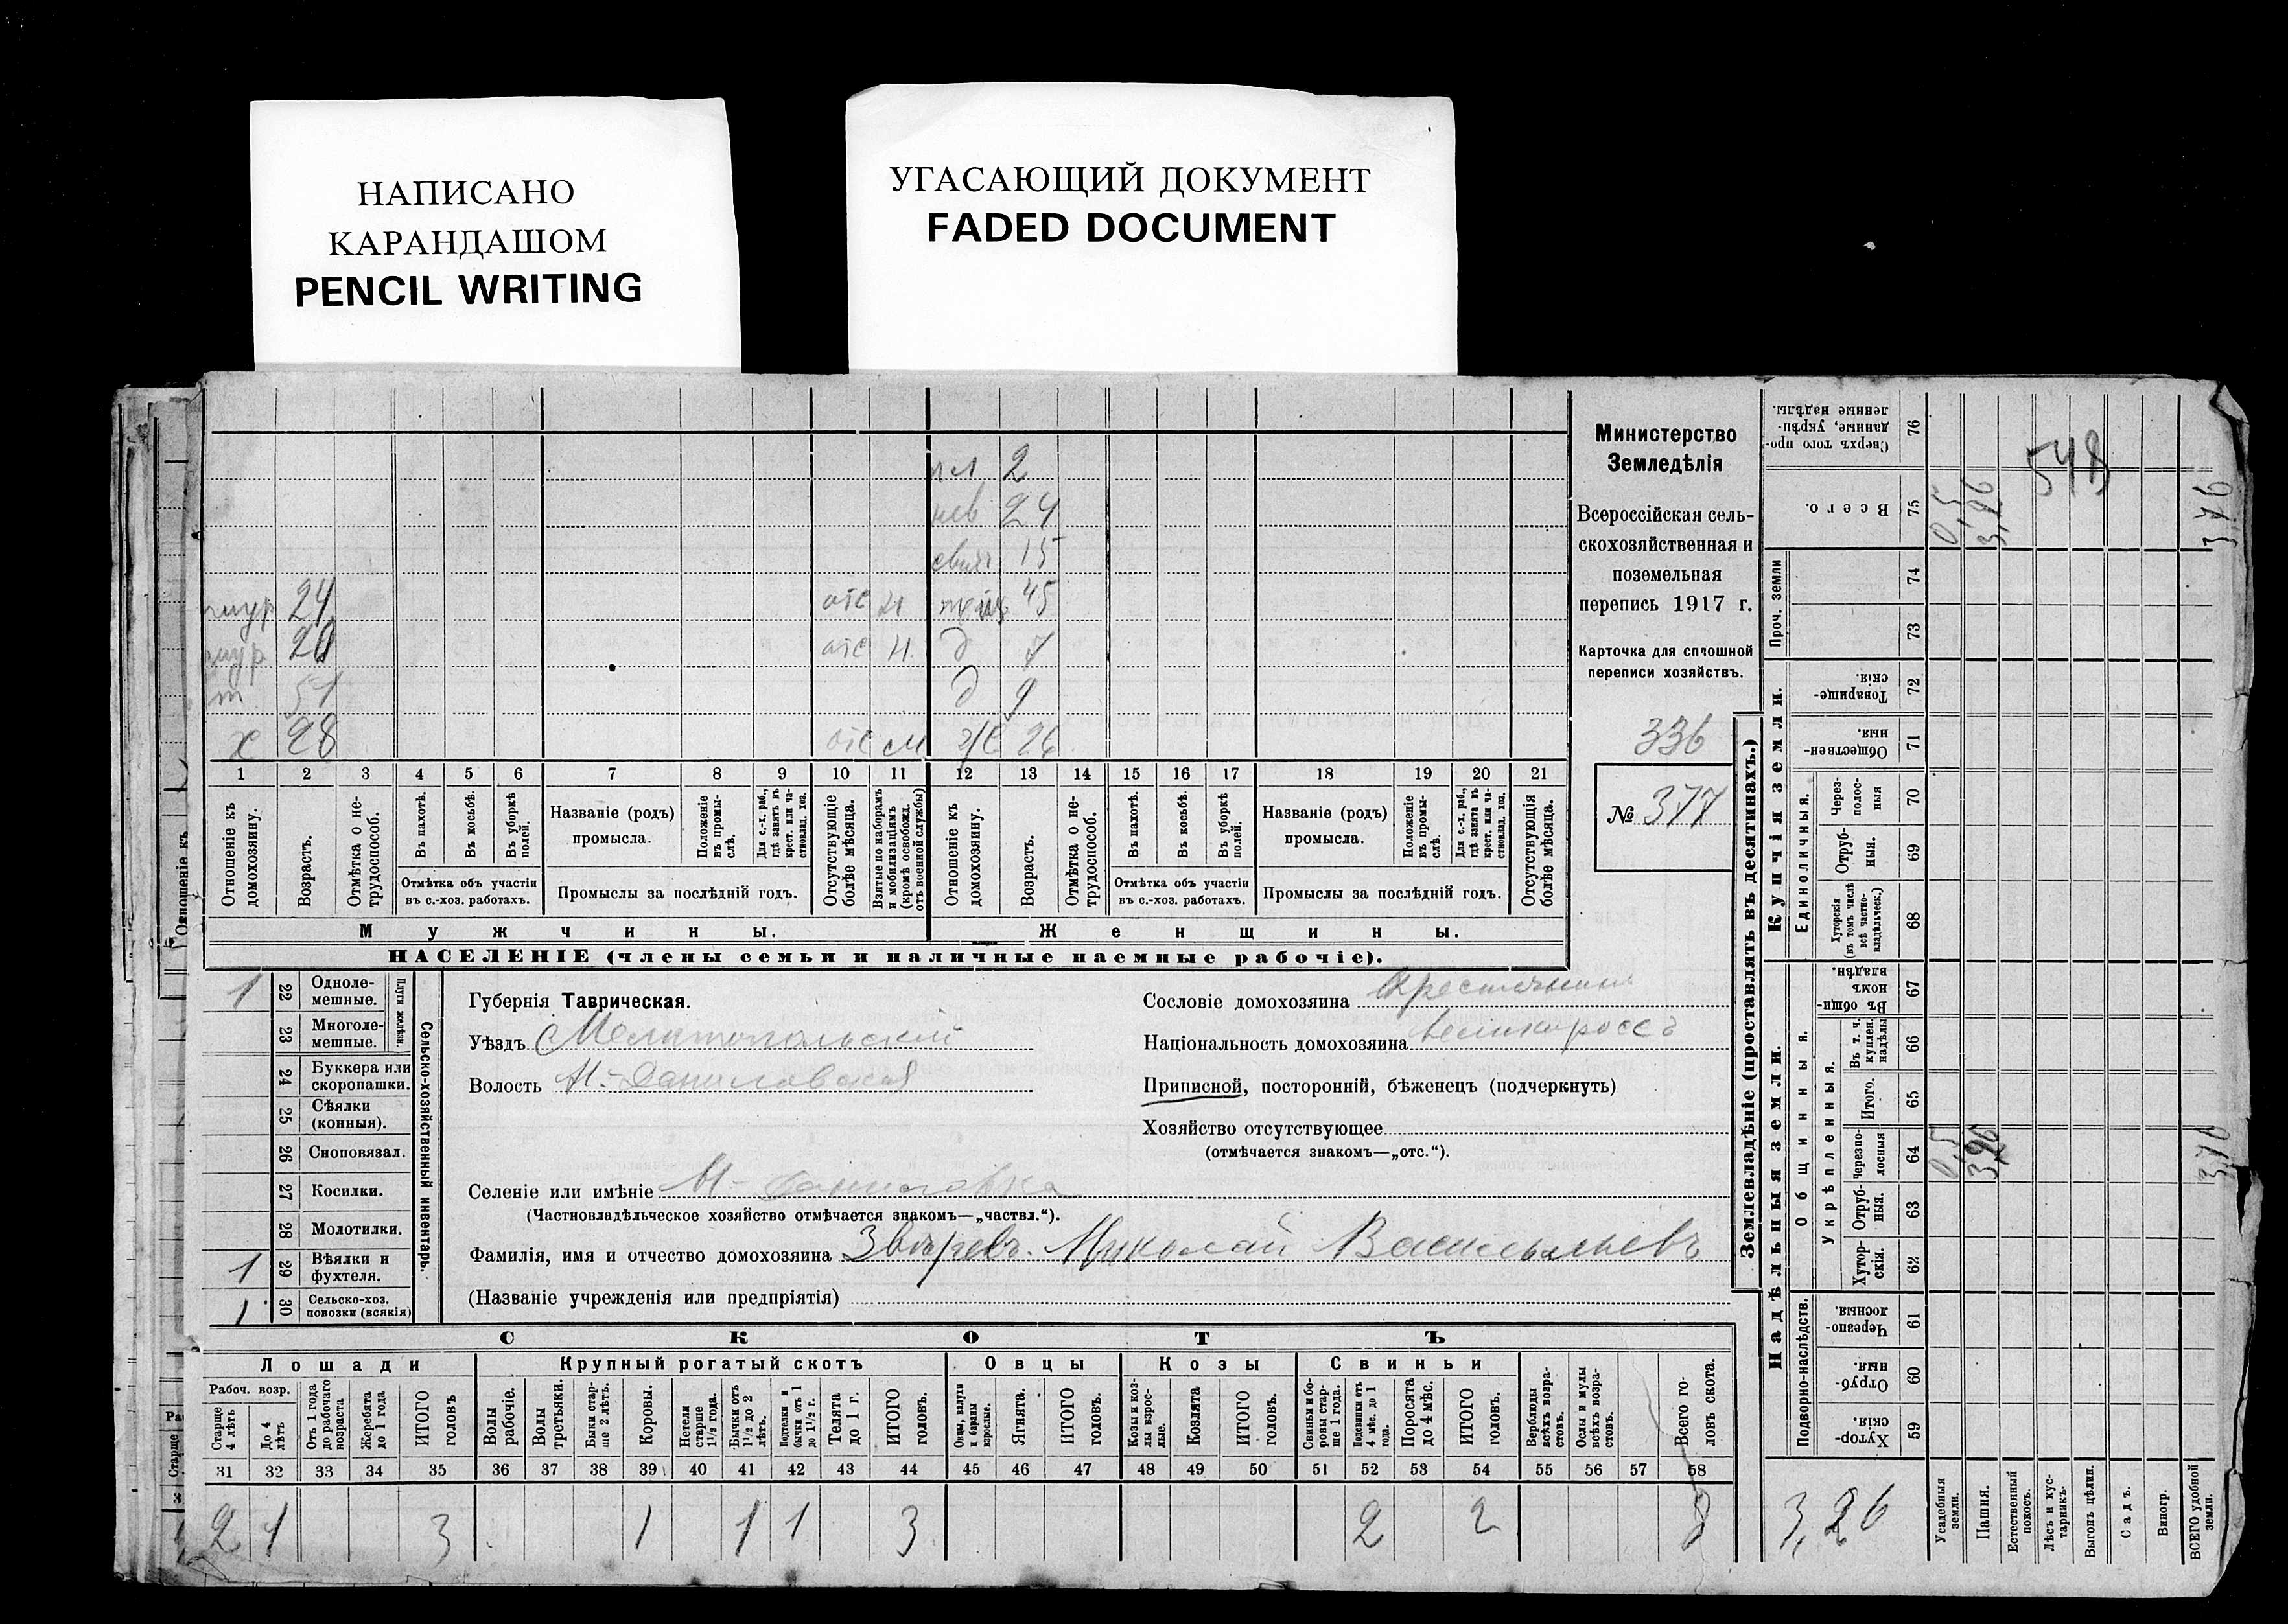 НАПИСАНО
КАРАНДАШОМ
PENCIL WRITING
УГАСАЮЩИЙ ДОКУМЕНТ
FADED DOCUMENT
2
24
15
24 отс 45
28 отс Н. д 7
51 д 9
х 28 отс 26
1 2 3 4 5 6 7 8 9 10 11 12 13 14 15 16 17 18 19 20 21
Отношеніе къ домохозяину.
Возрастъ.
Отмѣтка о нетрудоспособ.
Въ пахотѣ.
Въ косьбѣ.
Въ уборкѣ полей.
Отмѣтка объ участіи въ с.-хоз. работахъ.
Названіе (родъ) промысла.
Положеніе въ промыслѣ.
Для с.-х. раб., гдѣ занятъ въ крест. или частновлад. хоз.
Промыслы за послѣдній годъ.
Отсутствующіе болѣе мѣсяца.
Взятые по наборамъ и мобилизаціямъ (кромѣ освобожд. отъ военной службы)
Отношеніе къ домохозяину.
Возрастъ.
Отмѣтка о нетрудоспособ.
Въ пахотѣ.
Въ косьбѣ.
Въ уборкѣ полей.
Отмѣтка объ участіи въ с.-хоз. работахъ.
Названіе (родъ) промысла.
Положеніе въ промыслѣ.
Для с.-х. раб., гдѣ занятъ въ крест. или частновлад. хоз.
Промыслы за послѣдній годъ.
Отсутствующія болѣе мѣсяца.
Мужчины.
Женщины.
НАСЕЛЕНІЕ (члены семьи и наличные наемные рабочіе).
Министерство
Земледѣлія
Всероссійская сель-
скохозяйственная и
поземельная
перепись 1917 г.
Карточка для сплошной
переписи хозяйствъ.
336
№ 377
1 22 Одноле-
мешные.
23 Многоле-
мешные.
Плуги желѣзн.
24 Буккера или
скоропашки.
25 Сѣялки
(конныя).
26 Сноповязал.
27 Косилки.
28 Молотилки.
1 29 Вѣялки и
фухтеля.
1 30 Сельско-хоз.
повозки (всякія)
Сельско-хозяйственный инвентарь.
Губернія Таврическая.
Уѣздъ Мелитопольскій
Волость Н.-Даниловская
Селеніе или имѣніе Н-Даниловка
(Частновладѣльческое хозяйство отмѣчается знакомъ—„частвл.“).
Фамилія, имя и отчество домохозяина Звѣревъ Николай Васильевъ
(Названіе учрежденія или предпріятія)
Сословіе домохозяина Крестьянинъ
Національность домохозяина великороссъ
Приписной, посторонній, бѣженецъ (подчеркнуть)
Хозяйство отсутствующее
(отмѣчается знакомъ—„отс.“).
СКОТЪ
Лошади
Крупный рогатый скотъ
Овцы
Козы
Свиньи
Рабоч. возр.
Старше 4 лѣтъ
До 4 лѣтъ
Отъ 1 года до рабочаго возраста
Жеребята до 1 года
ИТОГО головъ
Волы рабочіе.
Волы третьяки.
Быки старше 2 лѣтъ.
Коровы.
Нетели старше 1½ года.
Бычки отъ 1½ до 2 лѣтъ.
Подтелки и бычки отъ 1 до 1½ г.
Телята до 1 г.
ИТОГО головъ.
Овцы, валухи и бараны взрослые.
Ягнята.
ИТОГО головъ.
Козы и козлы взрослые.
Козлята
ИТОГО головъ.
Свиньи и боровы старше 1 года.
Подсвинки отъ 4 мѣс. до 1 года.
Поросята до 4 мѣс.
ИТОГО головъ.
Верблюды всѣхъ возрастовъ.
Ослы и мулы всѣхъ возрастовъ.
Всего головъ скота.
31 32 33 34 35 36 37 38 39 40 41 42 43 44 45 46 47 48 49 50 51 52 53 54 55 56 57 58
2 1 3 1 1 1 3 2 2 8
Землевладѣніе (проставлять въ десятинахъ.)
Надѣльныя земли.
Купчія земли.
Проч. земли
Подворно-наслѣдств.
Общинныя.
Укрѣпленныя.
Единоличныя.
Сверхъ того проданные, укрѣпленные надѣлы. 76
548
Всего. 75 0,5 3,26 3,76
74
73
Товарищескія 72
Общественныя. 71
Черезполосныя 70
Отрубныя. 69
Хуторскія (въ томъ числѣ всѣ частновладѣльческ.) 68
Въ общинномъ владѣн. 67
Въ т. ч. куплен. надѣлы 66
Итого. 65
Черезполосныя 64 0,5 3,26 3,76
Отрубныя. 63
Хуторскія. 62
Черезполосныя. 61
Отрубныя. 60
Хуторскія. 59
3,26
Усадебныя земли.
Пашня.
Естественный покосъ.
Лѣсъ и кустарникъ.
Выгонъ цѣлин.
Садъ.
Виногр.
ВСЕГО удобной земли.